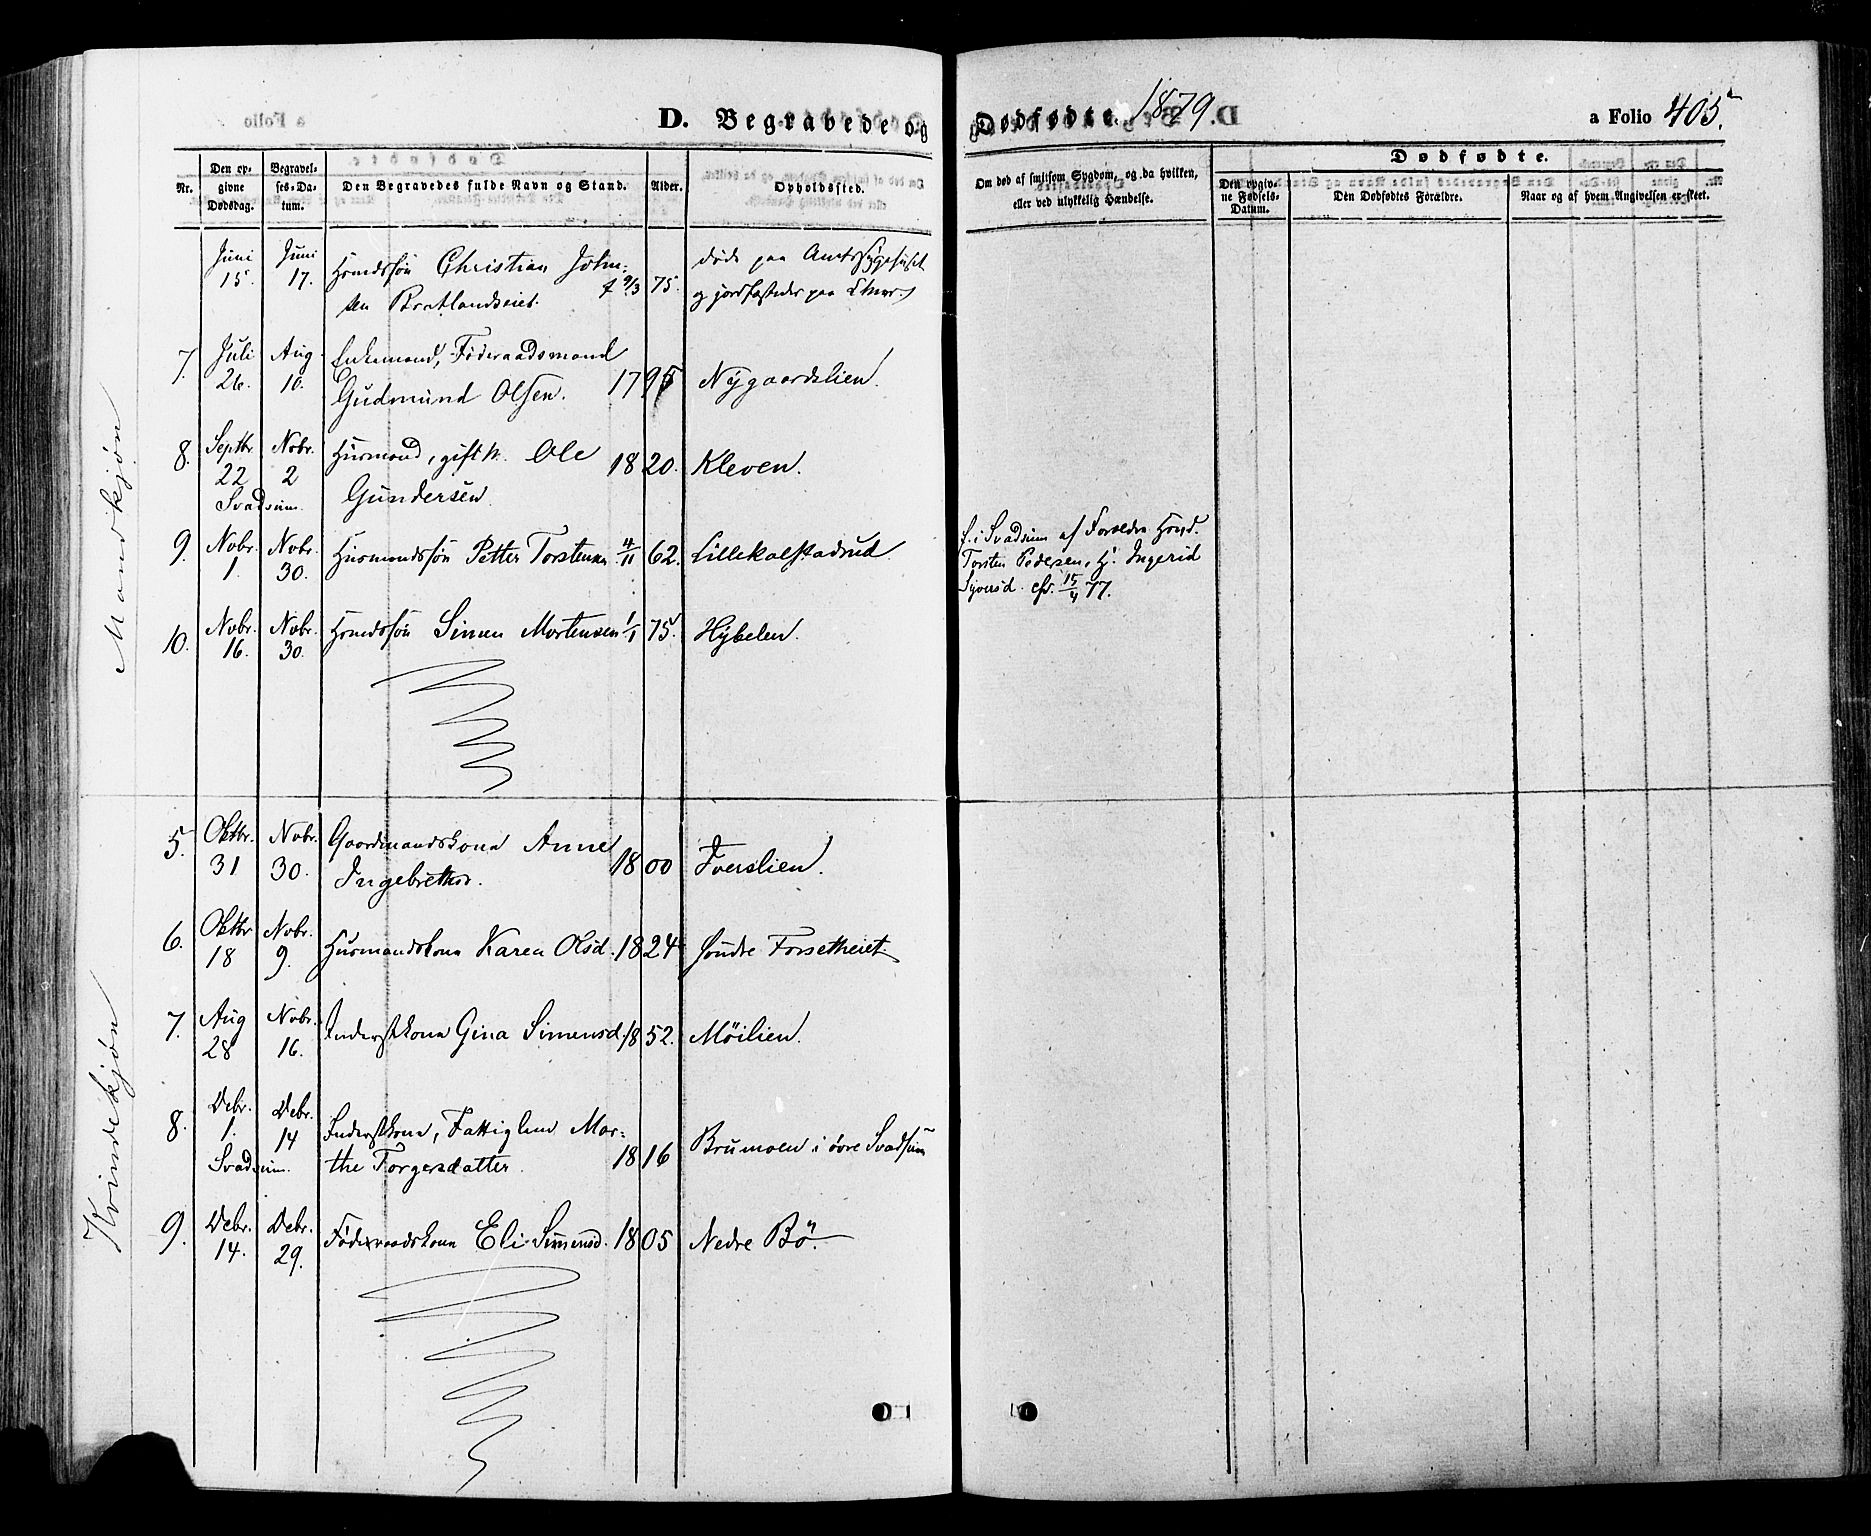 D. Begravede og Dødfødte. 1879
a Folio 405.
Nr.
Den opgivne Dødsdag.
Begravelses-Datum.
Den Begravedes fulde Navn og Stand.
Alder.
Opholdssted.
Om død af smitsom Sygdom, og da hvilken,
eller ved ulykkelig Hændelse.
Dødfødte.
Den opgivne Fødsels-Datum.
Den Dødfødtes Forældre.
Naar og af hvem Angivelsen er skeet.
Mandkjøn
Juni Juni
15. 17. Hsmdssøn Christian John- døde paa Amtssygehuset
sen Bratlandseiet. f 9/3 75. og jordfæstedes paa
7. Juli Aug Enkemand, Føderaadsmand
26. 10. Gudmund Olsen. 1795 Nygaardslien.
8. Septbr Nobr. Husmand, gift m. Ole
22 2 Gundersen 1820. Kleven.
Svadsum
9. Nobr. Nobr. Husmandssøn Petter Torstensen 4/11 62. Lillekalstadrud
1. 30.
f. i Svadsum af Forældre Hsmd.
Torsten Pedersen, H. Ingerid
Syversd. 15/4 77.
10. Nobr. Nobr. Hsmdssøn Simen Mortensen 1/1 75. Hybelen.
16. 30.
Kvindekjøn
5. Oktbr. Nobr. Gaardmandskona Anne
31 30. Ingebrethsd. 1800 Tverslien.
6. Oktbr Nobr.
18 9. Husmandskona Karen Olsd. 1824 søndre Forsetheiet.
7. Aug Nobr. Inderstkona Gina Simensd. 1852. Möilien.
28 16.
8. Debr. Debr.
1. 14 Inderstkona, Fattiglem Mar-
Svadsum. the Torgersdatter. 1816 Brumoen i øvre Svadsum
9. Debr. Debr.
14. 29. Føderaadskona Eli Simensd. 1805 Nedre Bö.